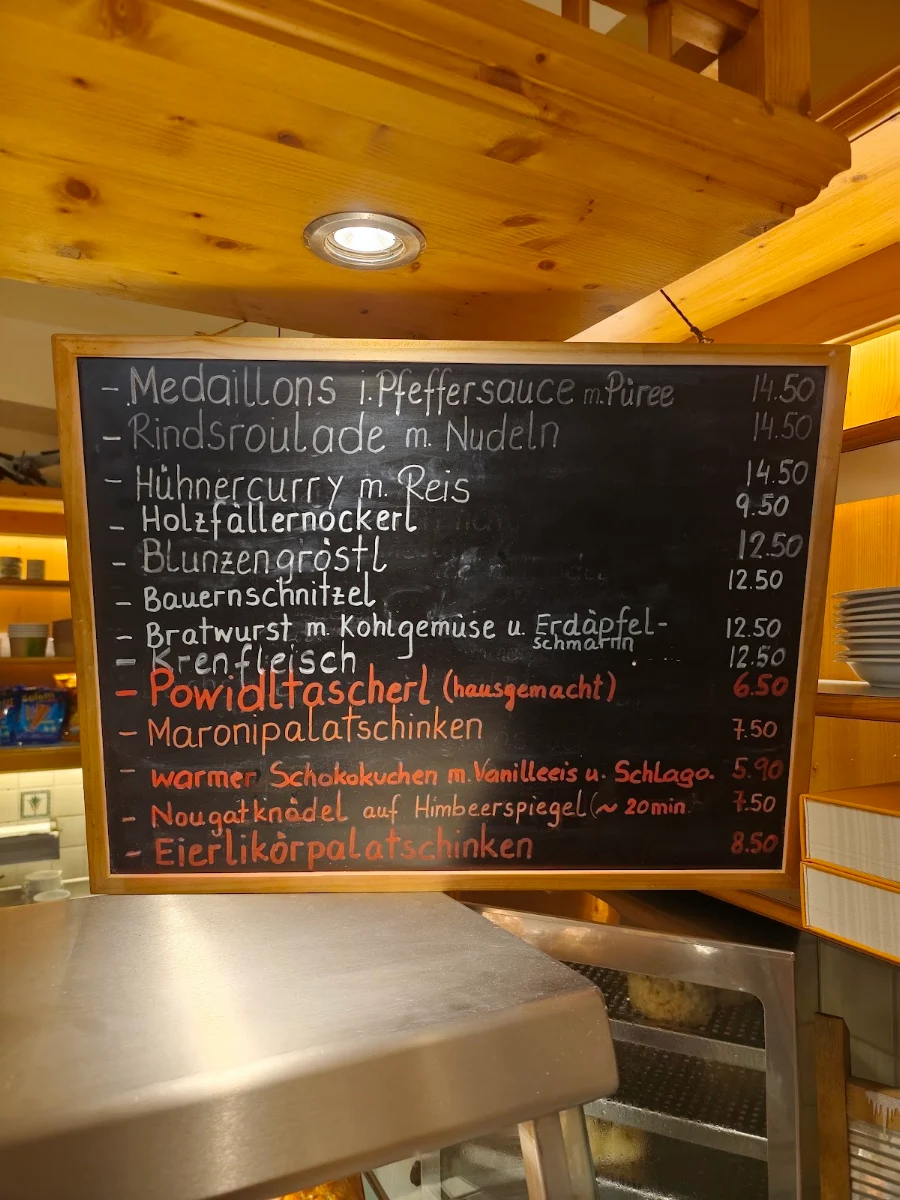 - Medaillons i. Pfeffersauce m. Püree 14.50
- Rindsroulade m. Nudeln 14.50
- Hühnercurry m. Reis 14.50
- Holzfällernockerl 9.50
- Blunzengröstl 12.50
- Bauernschnitzel 12.50
- Bratwurst m. Kohlgemüse u. Erdäpfel- 12.50
schmarrn
- Krenfleisch 12.50
- Powidltascherl (hausgemacht) 6.50
- Maronipalatschinken 7.50
- warmer Schokokuchen m. Vanilleeis u. Schlago. 5.90
- Nougatknödel auf Himbeerspiegel (~ 20min 7.50
- Eierlikörpalatschinken 8.50